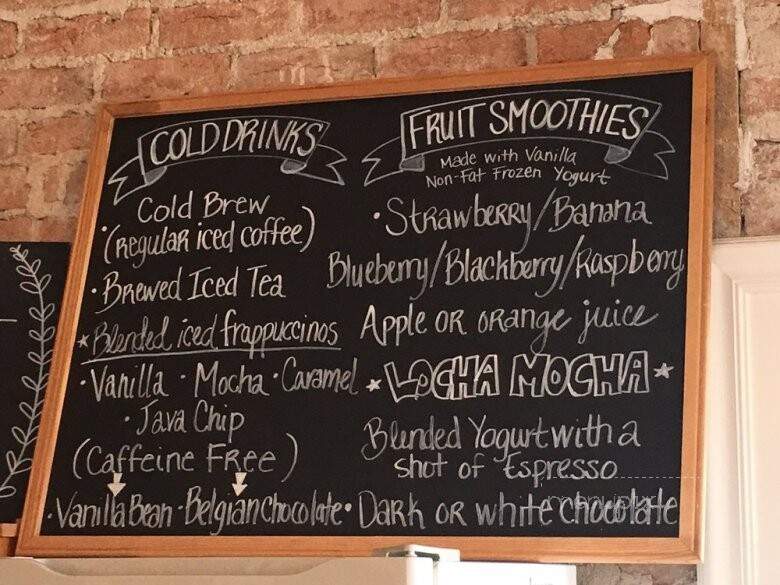 COLD DRINKS
Cold Brew
• (regular iced coffee)
• Brewed Iced Tea
* Blended iced frappuccinos
• Vanilla • Mocha • Caramel
• Java Chip
(Caffeine Free)
• Vanilla Bean • Belgian Chocolate
FRUIT SMOOTHIES
Made with Vanilla
Non-Fat Frozen Yogurt
• Strawberry/Banana
Blueberry/Blackberry/Raspberry
Apple or orange juice
* LOCHA MOCHA *
Blended Yogurt with a
shot of Espresso
• Dark or white chocolate